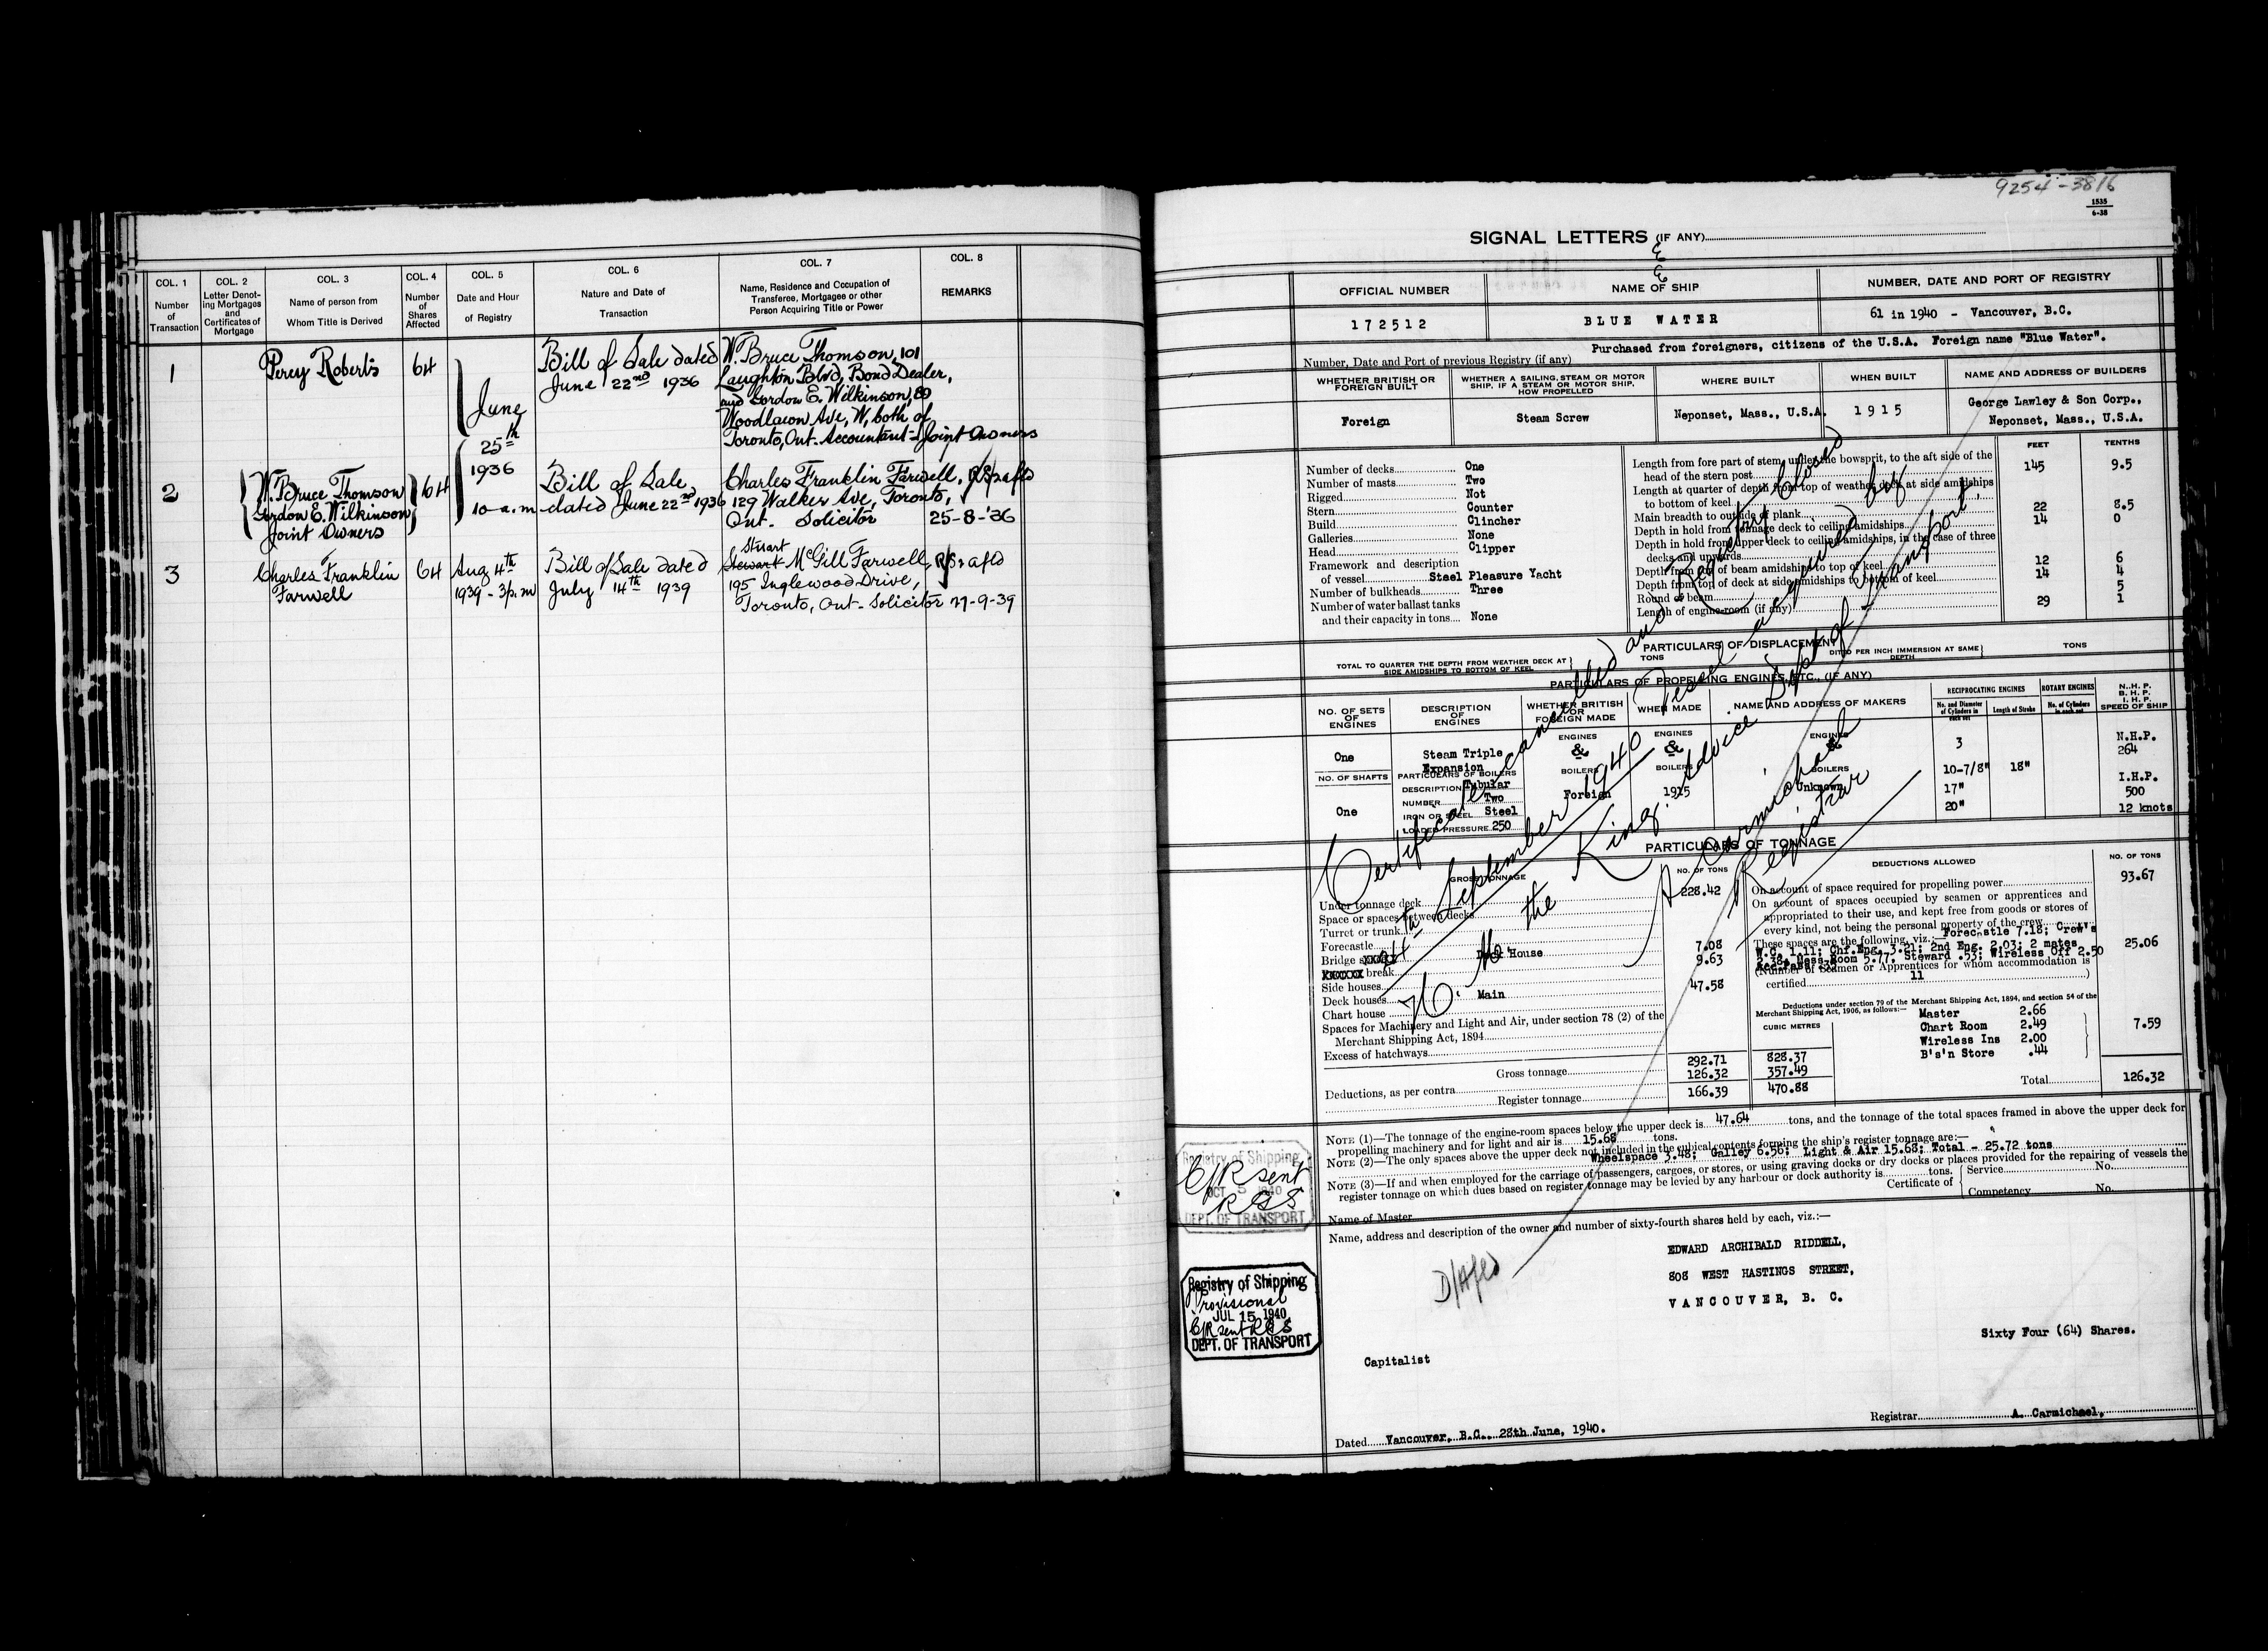 COL. 1
Number
of
Transaction
COL. 2
Letter Denot-
ing Mortgages
and
Certificates of
Mortgage
COL. 3
Name of person from
Whom Title is Derived
COL. 4
Number
of
Shares
Affected
COL. 5
Date and Hour
of Registry
COL. 6
Nature and Date of
Transaction
COL. 7
Name, Residence and Occupation of
Transferee, Mortgagee or other
Person Acquiring Title or Power
COL. 8
REMARKS
1
Percy Roberts
64
June
25th
1936
10 a.m
Bill of Sale dated
June 22nd 1936
W. Bruce Thomson, 101
Laughton Blvd, Bond Dealer,
and Gordon E. Wilkinson, 89
Woodlawn Ave, W, both of
Toronto, Ont. Accountant - Joint Owners
2
W. Bruce Thomson
Gordon E. Wilkinson
Joint Owners
64
Bill of Sale,
dated June 22nd 1936
Charles Franklin Farwell,
129 Walker Ave, Toronto,
Ont. Solicitor
25-8-'36
3
Charles Franklin
Farwell
64
Aug 4th
1939 - 3p.m
Bill of Sale dated
July 14th 1939
Stuart
Stewart McGill Farwell,
195 Inglewood Drive,
Toronto, Ont - Solicitor
27-9-39
9254-3816
1535
6-38
SIGNAL LETTERS (IF ANY)
OFFICIAL NUMBER
NAME OF SHIP
NUMBER, DATE AND PORT OF REGISTRY
172512
BLUE WATER
61 in 1940 - Vancouver, B.C.
Number, Date and Port of previous Registry (if any)
Purchased from foreigners, citizens of the U.S.A. Foreign name "Blue Water".
WHETHER BRITISH OR
FOREIGN BUILT
WHETHER A SAILING, STEAM OR MOTOR
SHIP. IF A STEAM OR MOTOR SHIP,
HOW PROPELLED
WHERE BUILT
WHEN BUILT
NAME AND ADDRESS OF BUILDERS
Foreign
Steam Screw
Neponset, Mass., U.S.A.
1915
George Lawley & Son Corp.,
Neponset, Mass., U.S.A.
FEET
TENTHS
Number of decks One
Number of masts Two
Rigged Not
Stern Counter
Build Clincher
Galleries None
Head Clipper
Framework and description
of vessel Steel Pleasure Yacht
Number of bulkheads Three
Number of water ballast tanks
and their capacity in tons None
Length from fore part of stem, under the bowsprit, to the aft side of the
head of the stern post 145 9.5
Length at quarter of depth from top of weather deck at side amidships
to bottom of keel
Main breadth to outside of plank 22 8.5
Depth in hold from tonnage deck to ceiling amidships 14 0
Depth in hold from upper deck to ceiling amidships, in the case of three
decks and upwards
Depth from top of beam amidships to top of keel 12 6
Depth from top of deck at side amidships to bottom of keel 14 4
Round of beam 5
Length of engine-room (if any) 29 1
PARTICULARS OF DISPLACEMENT
TOTAL TO QUARTER THE DEPTH FROM WEATHER DECK AT
SIDE AMIDSHIPS TO BOTTOM OF KEEL
TONS
DITTO PER INCH IMMERSION AT SAME
DEPTH
TONS
PARTICULARS OF PROPELLING ENGINES, ETC., (IF ANY)
NO. OF SETS
OF
ENGINES
DESCRIPTION
OF
ENGINES
WHETHER BRITISH
OR
FOREIGN MADE
WHEN MADE
NAME AND ADDRESS OF MAKERS
RECIPROCATING ENGINES
No. and Diameter
of Cylinders in
each set
Length of Stroke
ROTARY ENGINES
No. of Cylinders
in each set
N.H.P.
B.H.P.
I.H.P.
SPEED OF SHIP
One
Steam Triple
Expansion
NO. OF SHAFTS
One
PARTICULARS OF BOILERS
DESCRIPTION Tubular
NUMBER Two
IRON OR STEEL Steel
LOADED PRESSURE 250
ENGINES
&
BOILERS
Foreign
ENGINES
&
BOILERS
1915
ENGINES
&
BOILERS
Unknown
3
10-7/8"
17"
20"
18"
N.H.P.
264
I.H.P.
500
12 knots
PARTICULARS OF TONNAGE
GROSS TONNAGE
NO. OF TONS
DEDUCTIONS ALLOWED
NO. OF TONS
Under tonnage deck 228.42
Space or spaces between decks
Turret or trunk
Forecastle
Bridge space Deck House 7.08
break 9.63
Side houses
Deck houses Main 47.58
Chart house
Spaces for Machinery and Light and Air, under section 78 (2) of the
Merchant Shipping Act, 1894
Excess of hatchways
Gross tonnage 292.71 828.37
Deductions, as per contra 126.32 357.49
Register tonnage 166.39 470.88
On account of space required for propelling power 93.67
On account of spaces occupied by seamen or apprentices and
appropriated to their use, and kept free from goods or stores of
every kind, not being the personal property of the crew
These spaces are the following, viz.:— Forecastle 7.18; Crew's
W.C. 1.11; Chf.Eng. 3.21; 2nd Eng. 2.03; 2 mates
2.38, Mess Room 5.77, Steward .53; Wireless Off 2.50
25.06
(Number of Seamen or Apprentices for whom accommodation is
certified 11 )
Deductions under section 79 of the Merchant Shipping Act, 1894, and section 54 of the
Merchant Shipping Act, 1906, as follows:—
CUBIC METRES
Master 2.66
Chart Room 2.49
Wireless Ins 2.00
B's'n Store .44
7.59
Total 126.32
Certificate cancelled and Registry Closed
24th September 1940 Vessel acquired by
H. M. the King. Advice Dept of Transport.
A Carmichael
Registrar
NOTE (1)—The tonnage of the engine-room spaces below the upper deck is 47.64 tons, and the tonnage of the total spaces framed in above the upper deck for
propelling machinery and for light and air is 15.68 tons.
NOTE (2)—The only spaces above the upper deck not included in the cubical contents forming the ship's register tonnage are:—
Wheelspace 3.48; Galley 6.56; Light & Air 15.68; Total - 25.72 tons
NOTE (3)—If and when employed for the carriage of passengers, cargoes, or stores, or using graving docks or dry docks or places provided for the repairing of vessels the
register tonnage on which dues based on register tonnage may be levied by any harbour or dock authority is tons.
Name of Master
Certificate of
Service No.
Competency No.
Name, address and description of the owner and number of sixty-fourth shares held by each, viz.:—
Registry of Shipping
C/R sent
OCT 5 1940
RGS
DEPT. OF TRANSPORT
Registry of Shipping
Provisional
JUL 15 1940
C/R sent RGS
DEPT. OF TRANSPORT
EDWARD ARCHIBALD RIDDELL,
808 WEST HASTINGS STREET,
VANCOUVER, B. C.
Sixty Four (64) Shares.
Capitalist
Dated Vancouver, B.C., 28th June, 1940.
Registrar A. Carmichael,